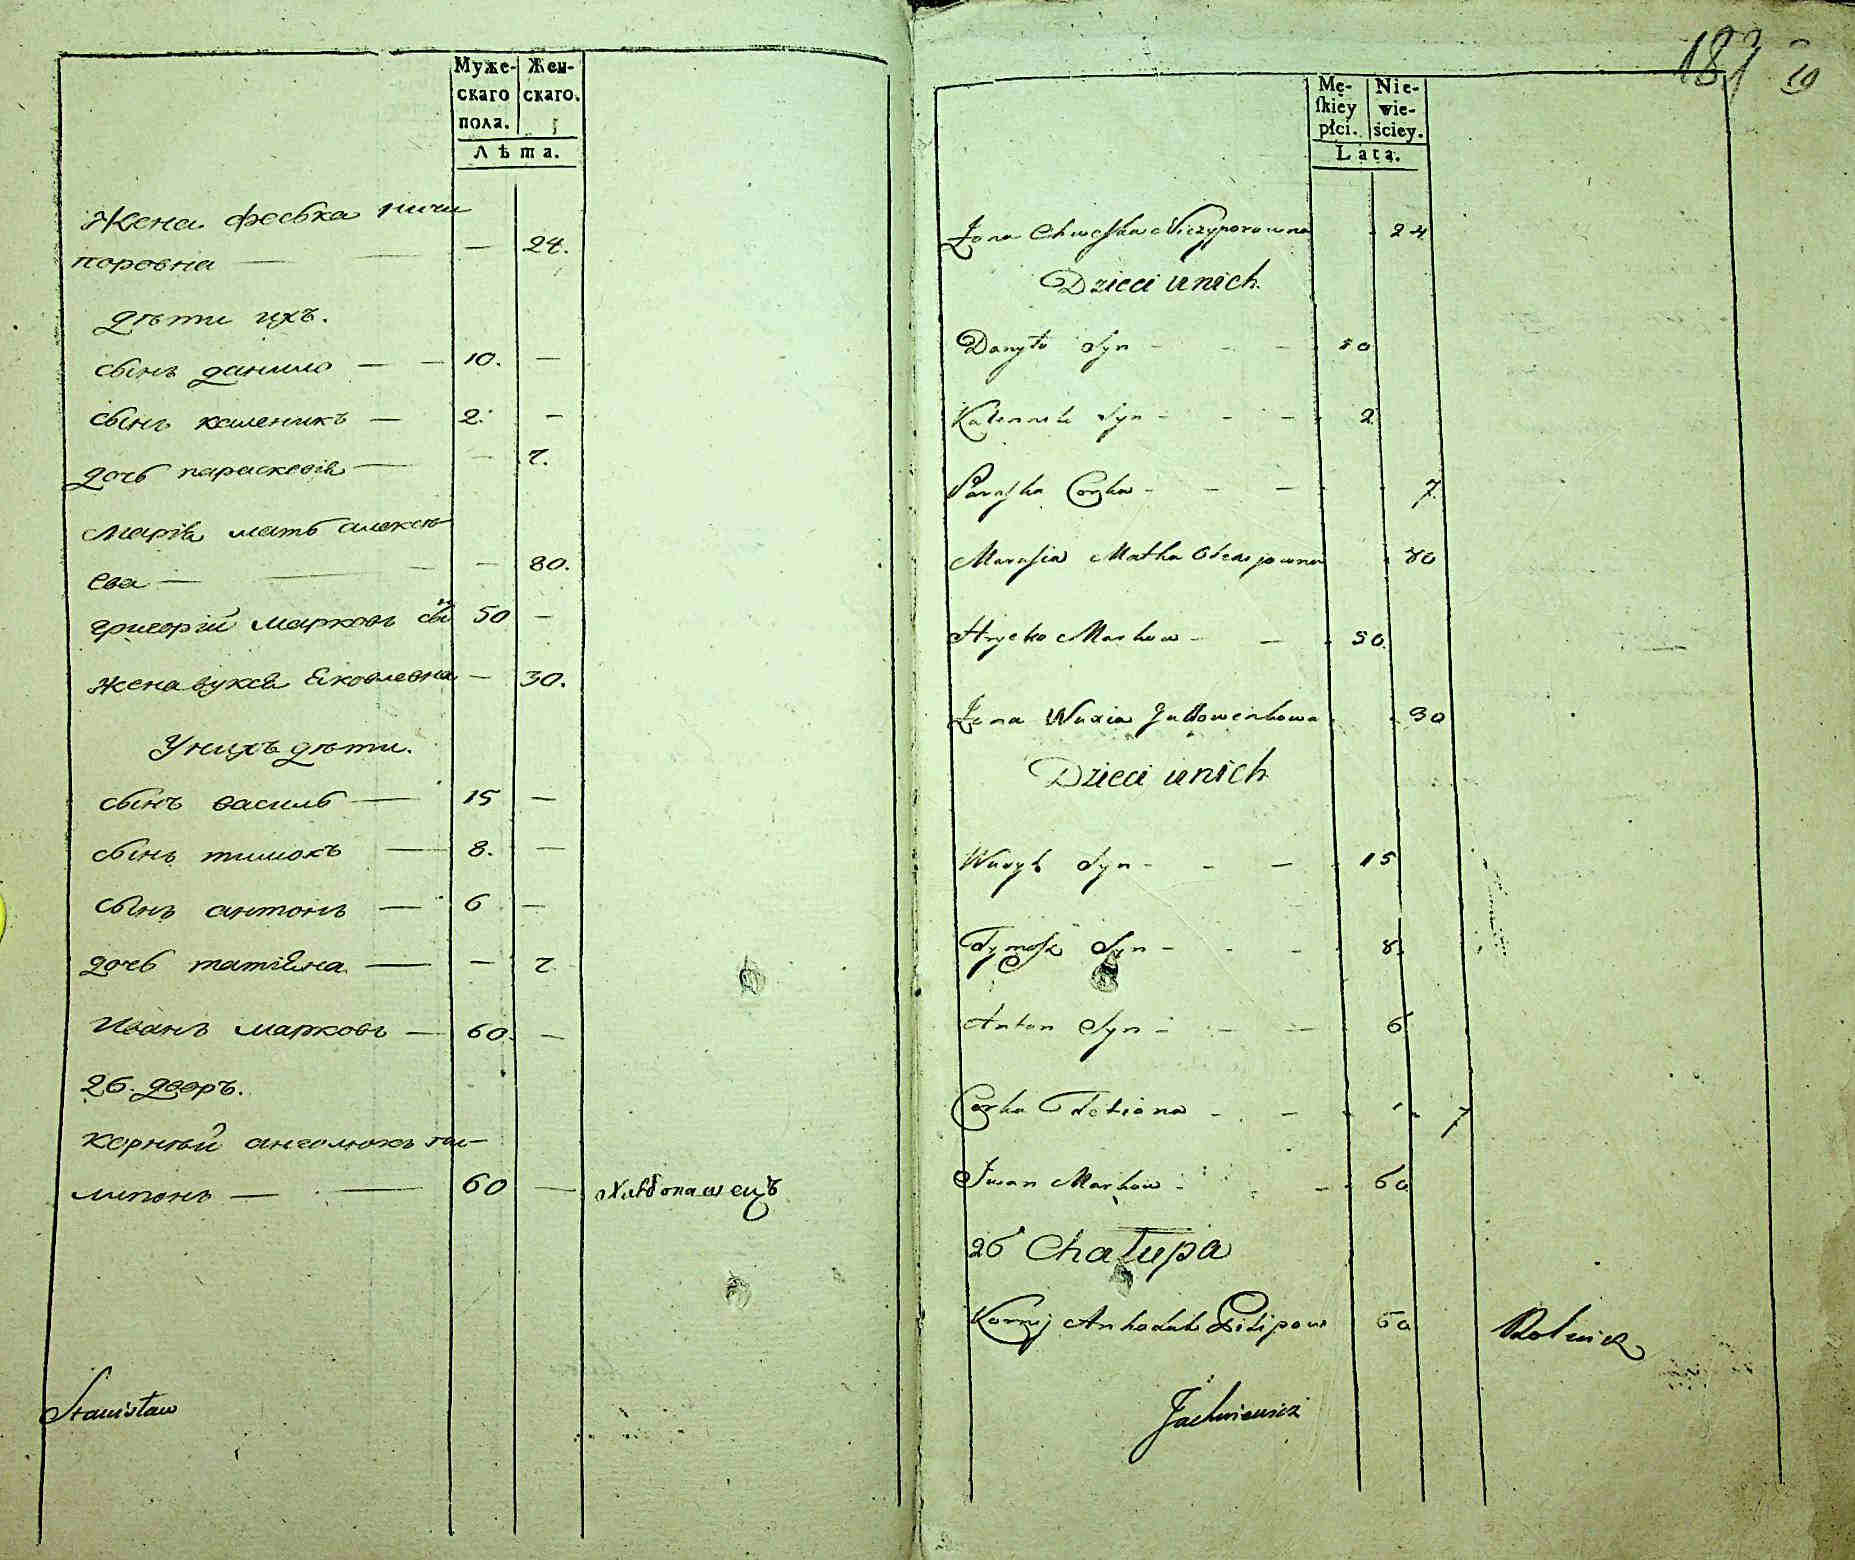 Муже-
скаго
пола.
Жен-
скаго.
Лѣта.
Жена Фесбка ничи
поровна — 24.
дѣти ихъ.
сынъ данило — 10. —
сынъ каленикъ — 2. —
дочь параскевія — — 7.
Марія мать алексѣ-
ева — — 80.
григорій марковъ сы 50 —
жена вукся Яковлевна — 30.
У нихъ дѣти.
сынъ василь — 15 —
сынъ тимохъ — 8. —
сынъ антонъ — 6 —
дочь татіяна — — 7
Иванъ марковъ — 60. —
26. дворъ.
корнѣй анголюкъ пи-
липовъ — 60 — Хлѣбопашецъ
Stanisław
183
10
Mę-
skiey
płci.
Nie-
wie-
ściey.
Lata.
Żona Chweska Niczyporowna 24
Dzieci unich
Danyło Syn - - - 10
Kalennik Syn - - - 2
Paraska Corka - - - 7
Marusia Matka 80
Hrycko Markow - - 50
Żona Wuxia 30
Dzieci unich
Wasyl Syn - - - 15
Tymosz Syn - - - 8
Anton Syn - - - 6
Corka Tetiana - - - 7
Iwan Markow - - - 60
26 Chałupa
Kornij Anholuk Pilipow 60 Rolnick
Jachniewicz